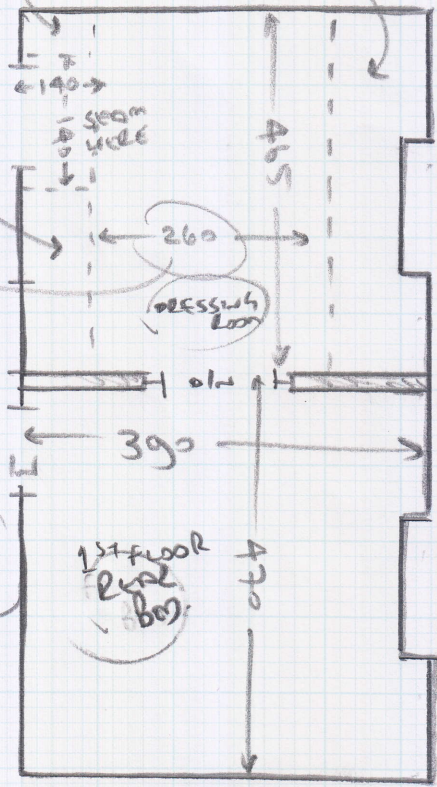 140
SEAM
HERE
140
465
260
DRESSING
ROOM
O/N
390
1ST FLOOR
REAR
BM.
470